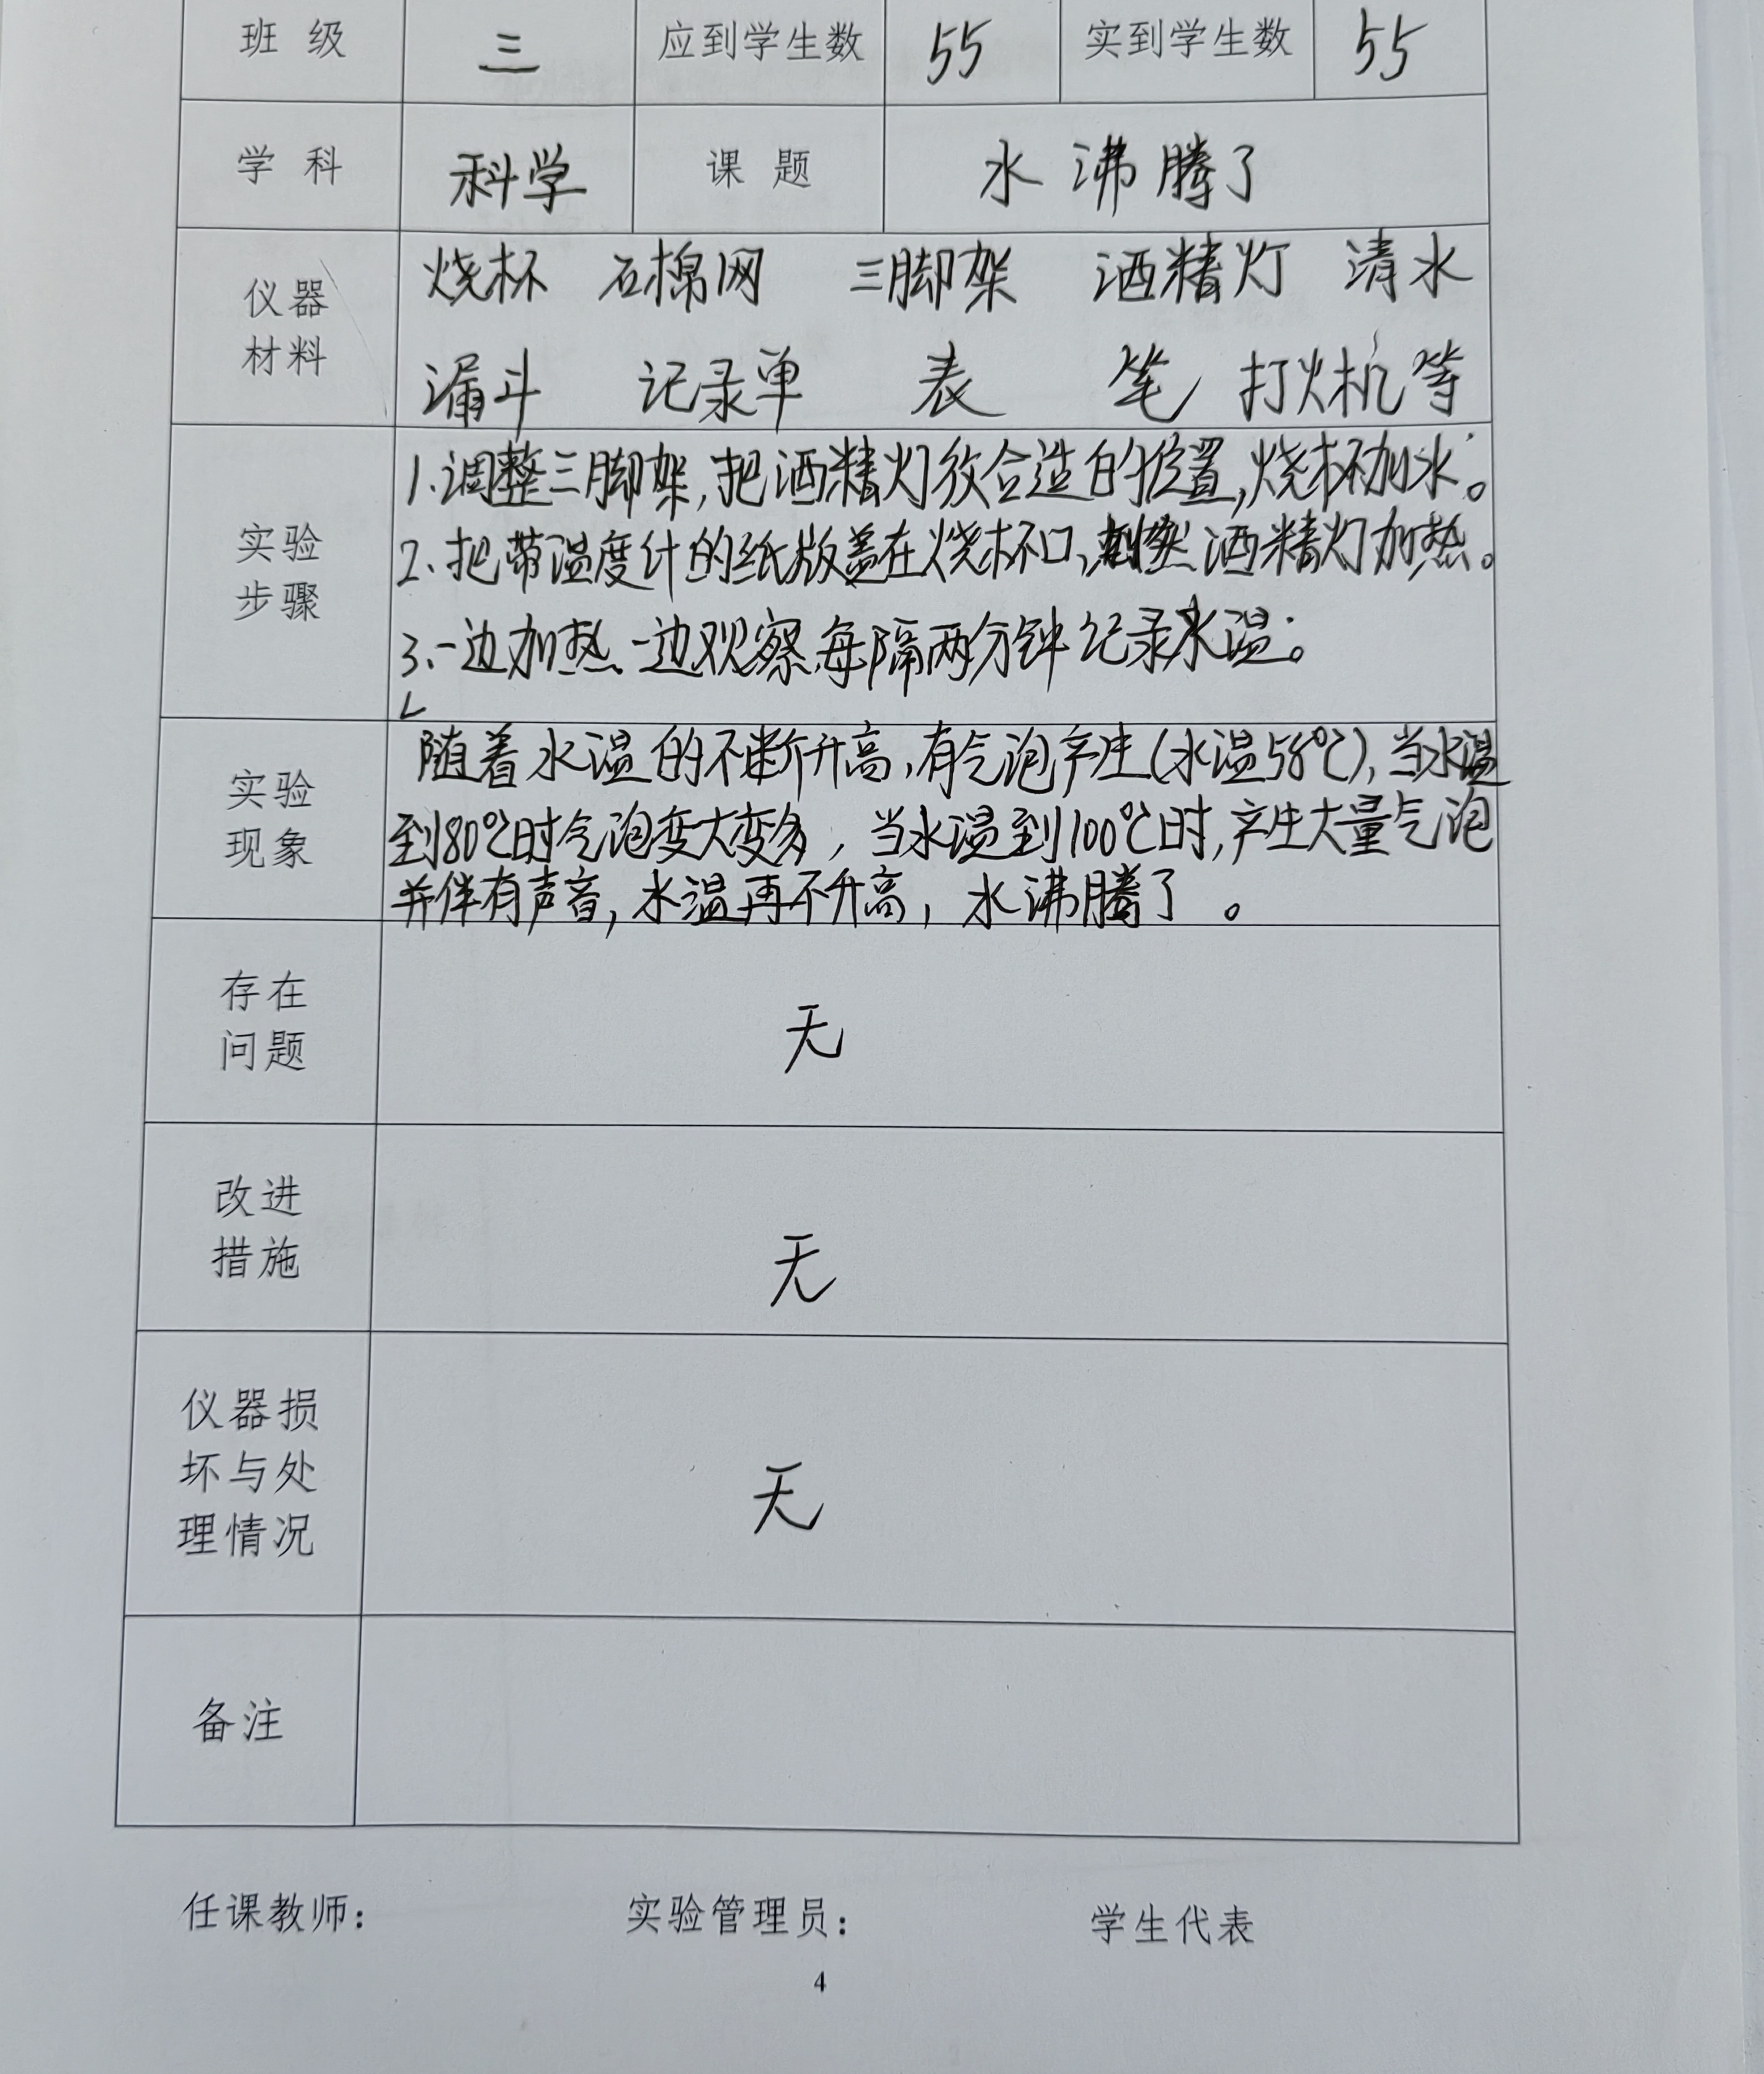 班 级 三 应到学生数 55 实到学生数 55
学 科 科学 课 题 水沸腾了
仪器
材料
烧杯 石棉网 三脚架 酒精灯 清水
漏斗 记录单 表 笔 打火机等
实验
步骤
1.调整三脚架,把酒精灯放合适的位置,烧杯加水。
2、把带温度计的纸版盖在烧杯口、点燃酒精灯加热。
3、一边加热、一边观察,每隔两分钟记录水温。
实验
现象
随着水温的不断升高,有气泡产生(水温58℃),当水温
到80℃时气泡变大变多,当水温到100℃时,产生大量气泡
并伴有声音,水温再不升高,水沸腾了。
存在
问题
无
改进
措施
无
仪器损
坏与处
理情况
无
备注
任课教师: 实验管理员: 学生代表
4